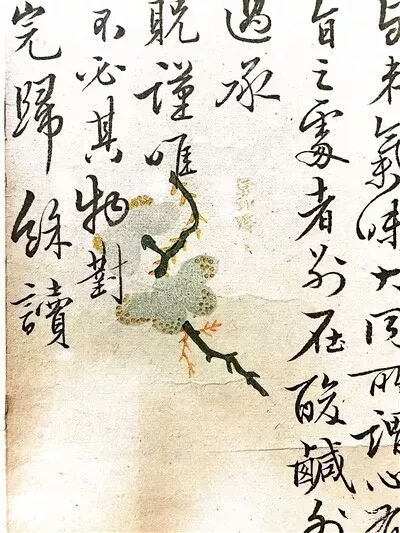 氣味大同所謂心有
之處者別在酸鹹外
過承
貺謹唯
不必其物對
完歸餘讀